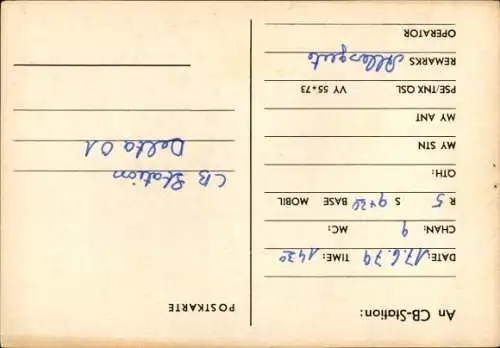 An CB-Station:
DATE: 17.6.79 TIME: 14³⁰
CHAN: 9 MC:
R 5 S 9+20 BASE MOBIL
QTH:
MY STN
MY ANT
PSE/TNX QSL VY 55+73
REMARKS
OPERATOR
POSTKARTE
CB Station
Delta 01